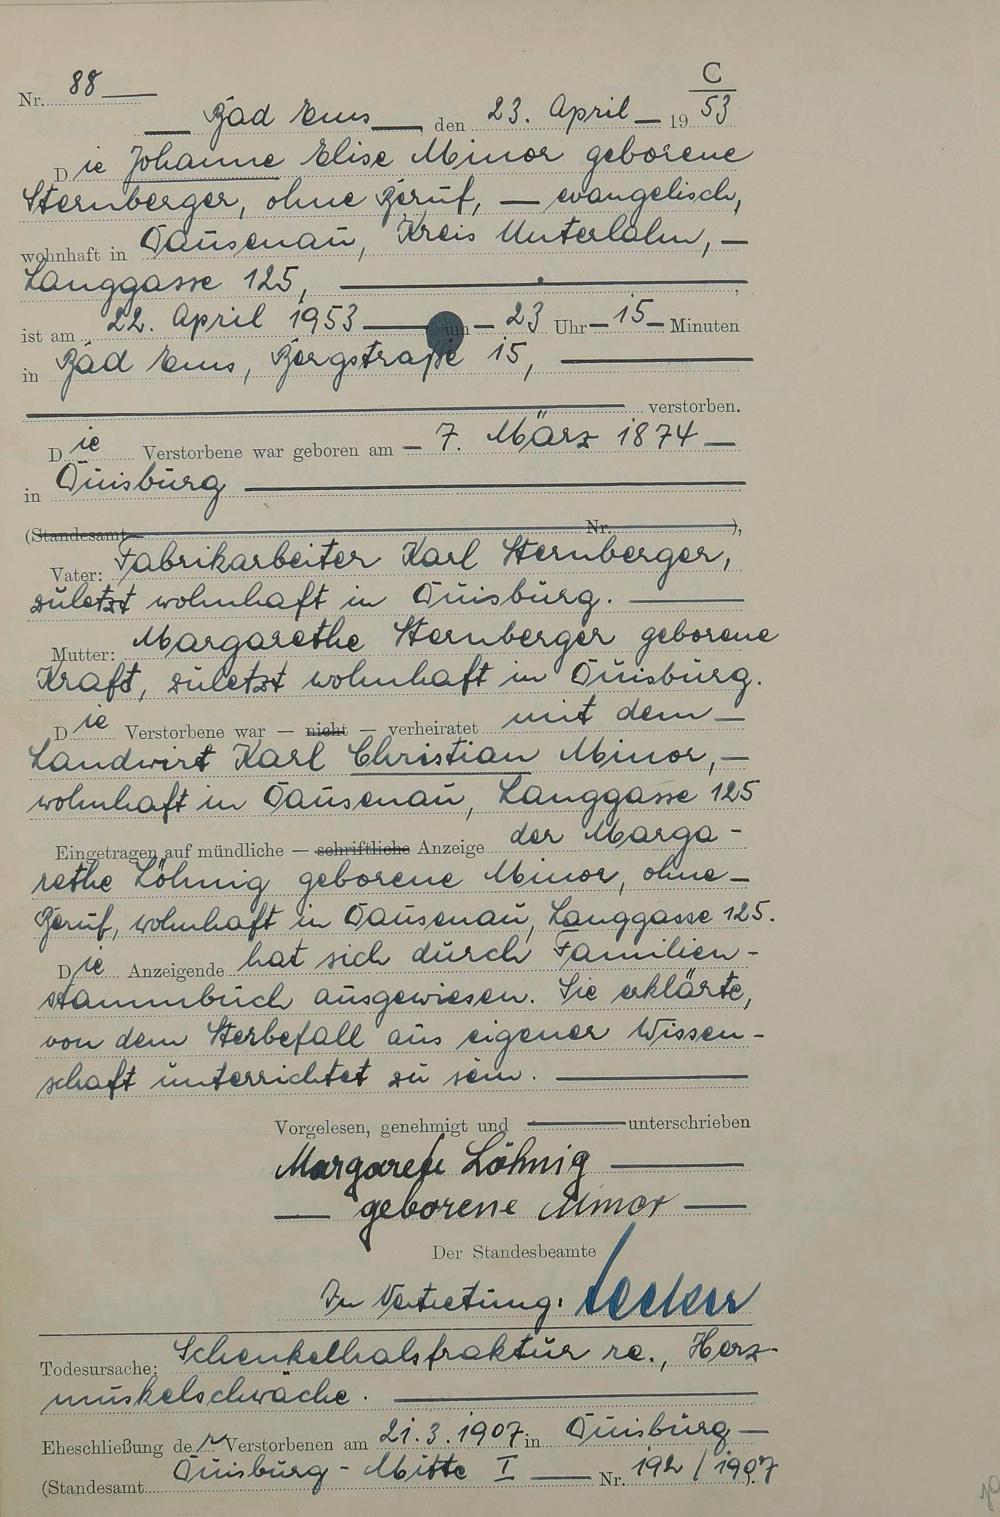 C
Nr. 88
Bad Ems, den 23. April 1953
Die Johanne Elise Minor geborene
Sternberger, ohne Beruf, — evangelisch,
wohnhaft in Dausenau, Kreis Unterlahn, —
Langgasse 125,
ist am 22. April 1953 um — 23 Uhr — 15 — Minuten
in Bad Ems, Bergstraße 15,
verstorben.
Die Verstorbene war geboren am — 7. März 1874 —
in Duisburg
(Standesamt Nr. ),
Vater: Fabrikarbeiter Karl Sternberger,
zuletzt wohnhaft in Duisburg.
Mutter: Margarethe Sternberger geborene
Kraft, zuletzt wohnhaft in Duisburg.
Die Verstorbene war — nicht — verheiratet mit dem —
Landwirt Karl Christian Minor, —
wohnhaft in Dausenau, Langgasse 125
Eingetragen auf mündliche — schriftliche Anzeige der Marga-
rethe Löhnig geborene Minor, ohne —
Beruf, wohnhaft in Dausenau, Langgasse 125.
Die Anzeigende hat sich durch Familien-
stammbuch ausgewiesen. Sie erklärte,
von dem Sterbefall aus eigener Wissen-
schaft unterrichtet zu sein.
Vorgelesen, genehmigt und unterschrieben
Margarete Löhnig
geborene Minor
Der Standesbeamte
In Vertretung:
Todesursache: Schenkelhalsfraktur re., Herz-
muskelschwäche.
Eheschließung der Verstorbenen am 21.3.1907 in Duisburg —
(Standesamt Duisburg - Mitte I — Nr. 192/1907